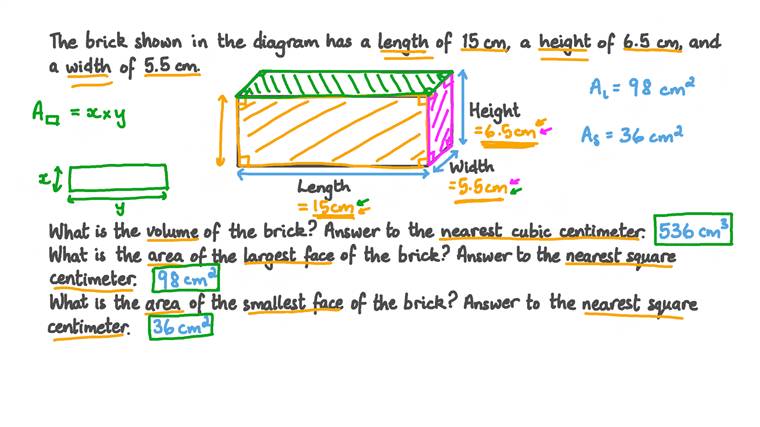 The brick shown in the diagram has a length of 15 cm, a height of 6.5 cm, and
a width of 5.5 cm.
A□ = x × y
A_L = 98 cm²
A_S = 36 cm²
Height
= 6.5 cm
Width
= 5.5 cm
Length
= 15 cm
x
y
What is the volume of the brick? Answer to the nearest cubic centimeter. 536 cm³
What is the area of the largest face of the brick? Answer to the nearest square
centimeter. 98 cm²
What is the area of the smallest face of the brick? Answer to the nearest square
centimeter. 36 cm²